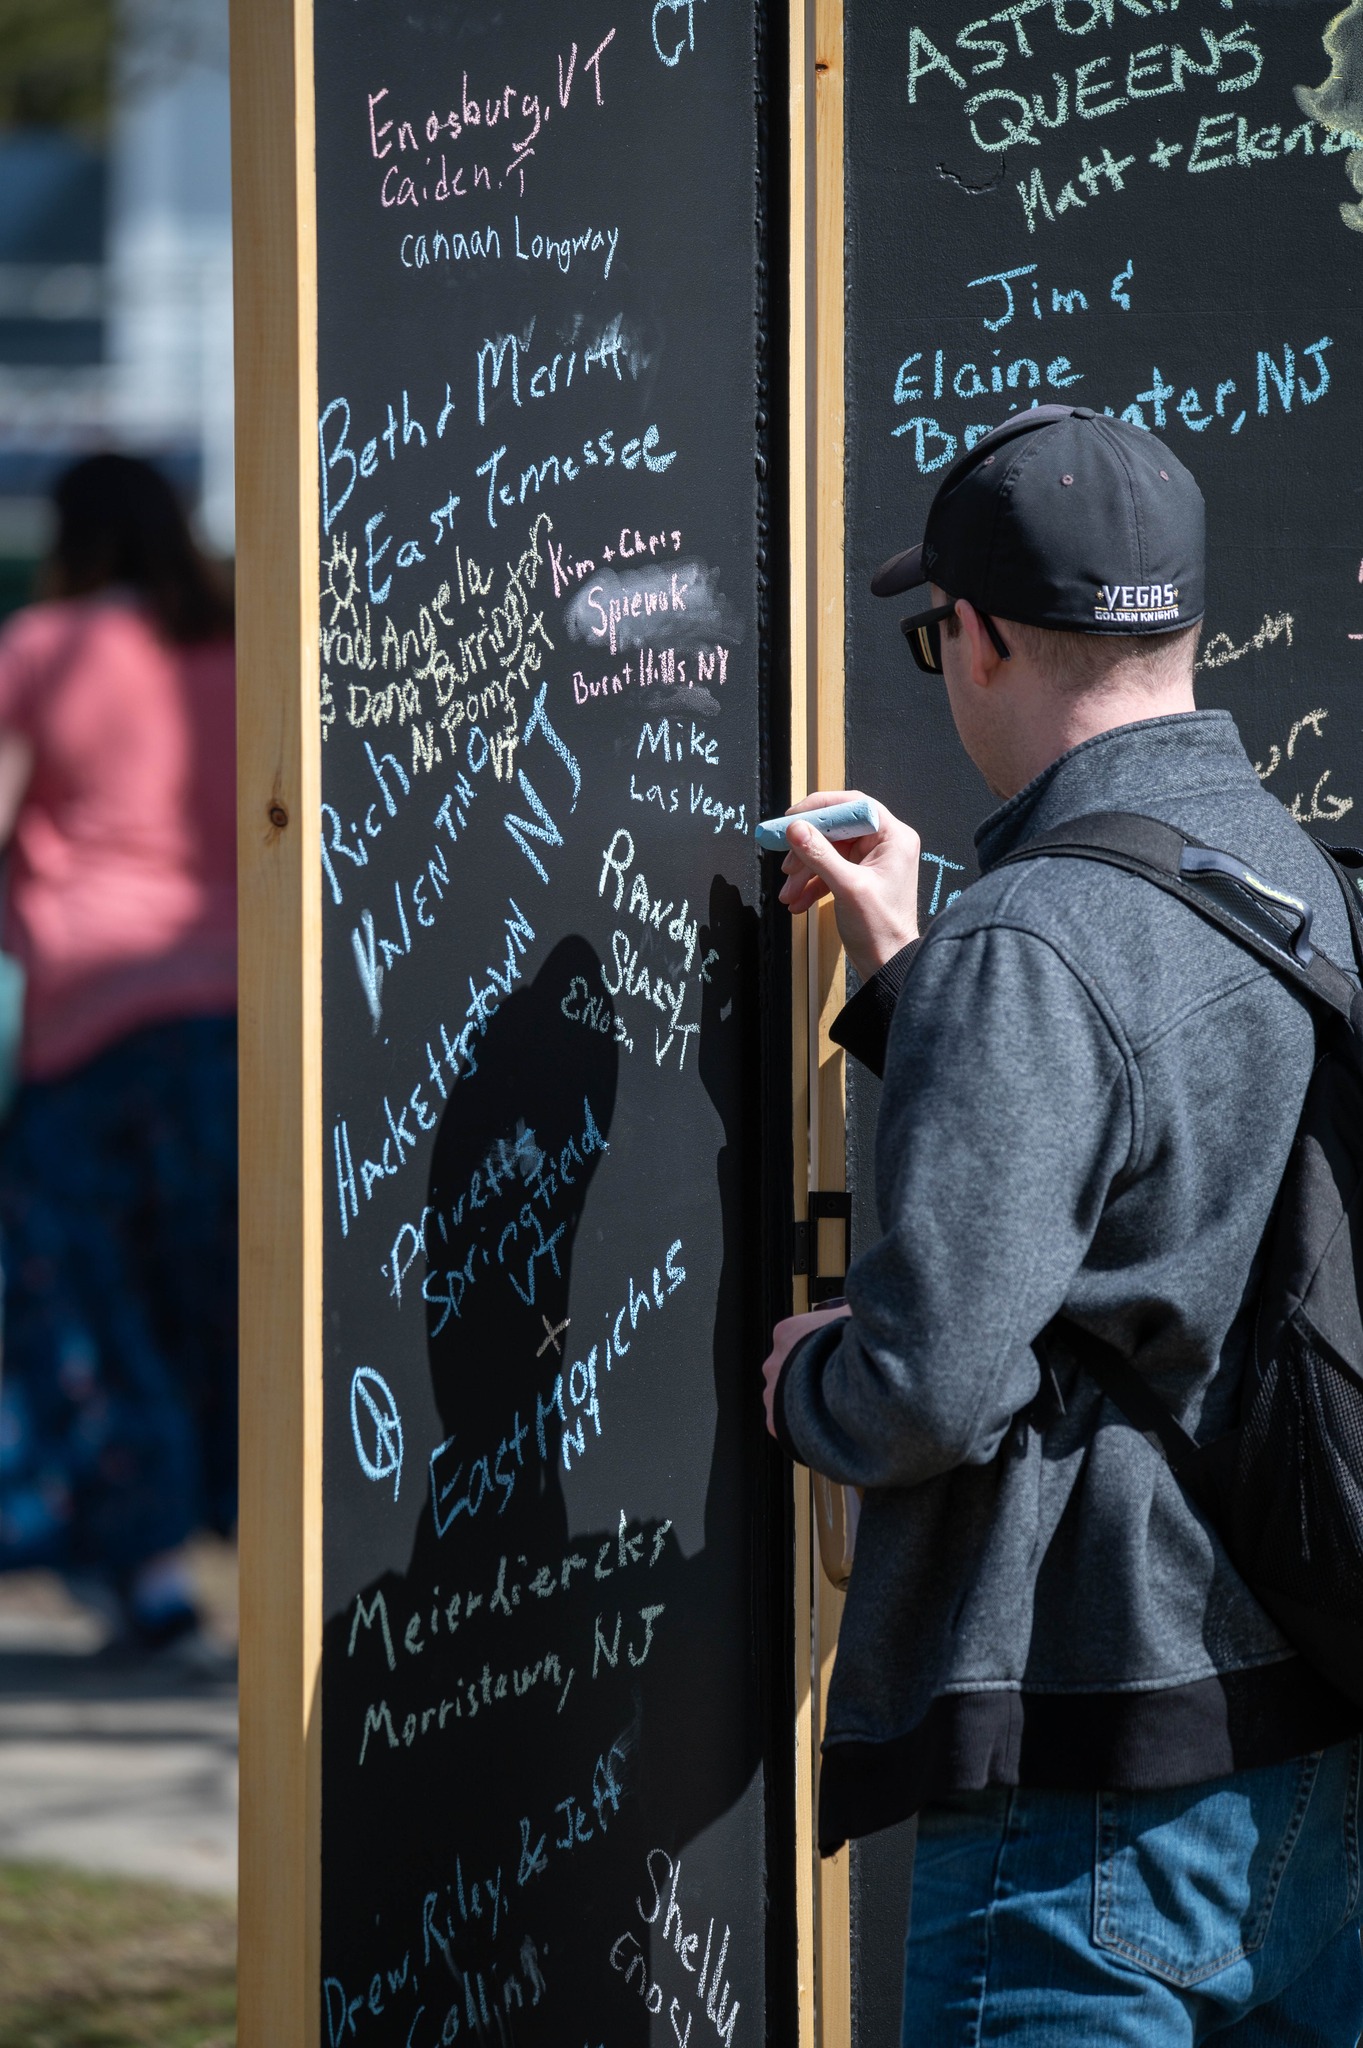 CT
Enosburg, VT
Caiden. T
canaan Longway
Beth & Merritt
East Tennessee
Angela
& Dana Burrington
N. Pomfret
VT
Kim + Chris
Spiewak
Burnt Hills, NY
Mike
Las Vegas,
Rich
VALENTINO
NJ
Hackettstown
RANdy &
STACY
ENOS., VT
Privetts
Springfield
VT
+
East Moriches
NY
Meierdiercks
Morristown, NJ
Drew, Riley, & Jeff
Collins
Shelly
ASTORIA
QUEENS
Matt + Elena
Jim &
Elaine
NJ
VEGAS
GOLDEN KNIGHTS